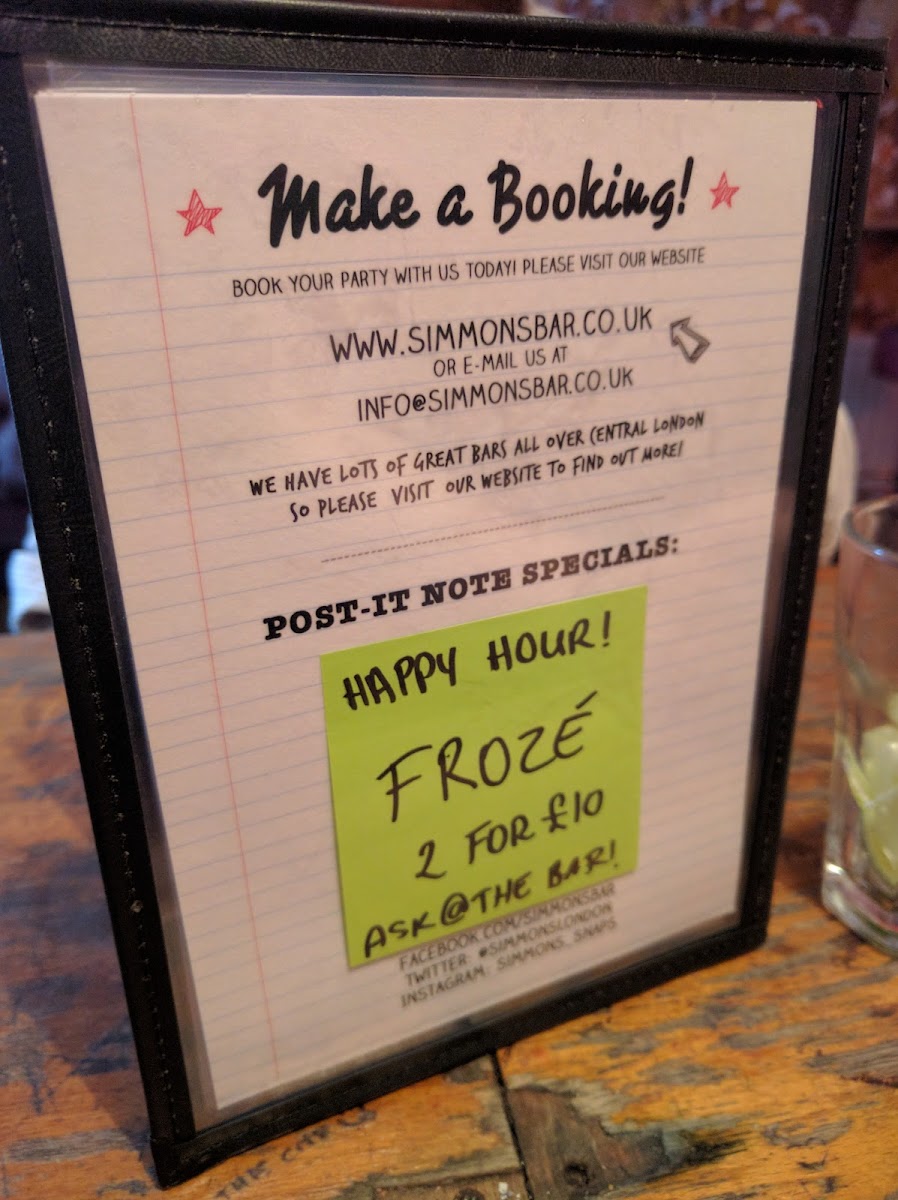 Make a Booking!
BOOK YOUR PARTY WITH US TODAY! PLEASE VISIT OUR WEBSITE
WWW.SIMMONSBAR.CO.UK
OR E-MAIL US AT
INFO@SIMMONSBAR.CO.UK
WE HAVE LOTS OF GREAT BARS ALL OVER CENTRAL LONDON
SO PLEASE VISIT OUR WEBSITE TO FIND OUT MORE!
POST-IT NOTE SPECIALS:
HAPPY HOUR!
FROZÉ
2 FOR £10
ASK@THE BAR!
FACEBOOK.COM/SIMMONSBAR
TWITTER: #SIMMONSLONDON
INSTAGRAM: SIMMONS_SNAPS